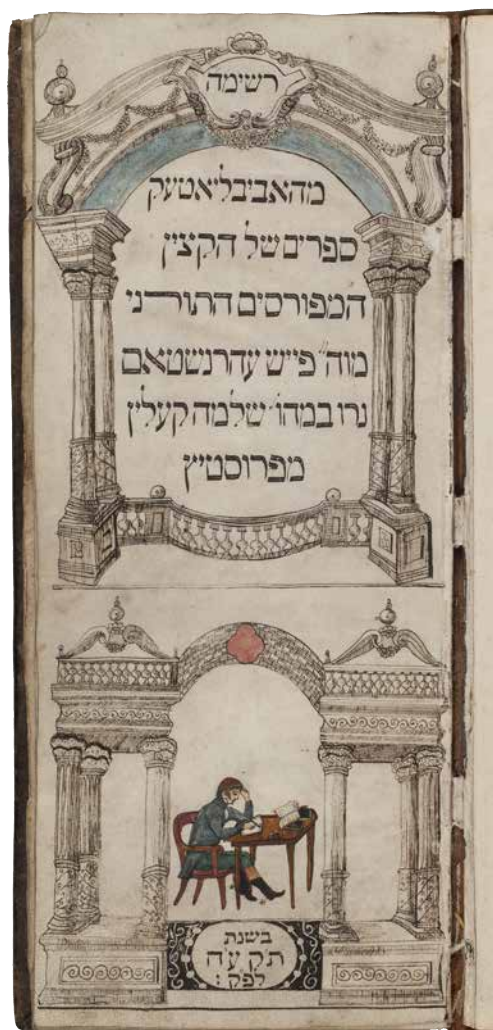 רשימה
מהאביבליאטעק
ספרים של הקצין
המפורסים התורני
מוה״ פייש עהרנשטאם
נרו במהו׳ שלמה קעלין
מפרוסטיץ
בשנת
תקעח
לפק: